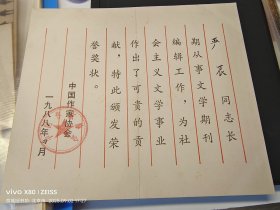 严辰同志长
期从事文学期刊
编辑工作，为社
会主义文学事业
作出了可贵的贡
献，特此颁发荣
誉奖状。
中国作家协会
一九八八年 月
vivo X80